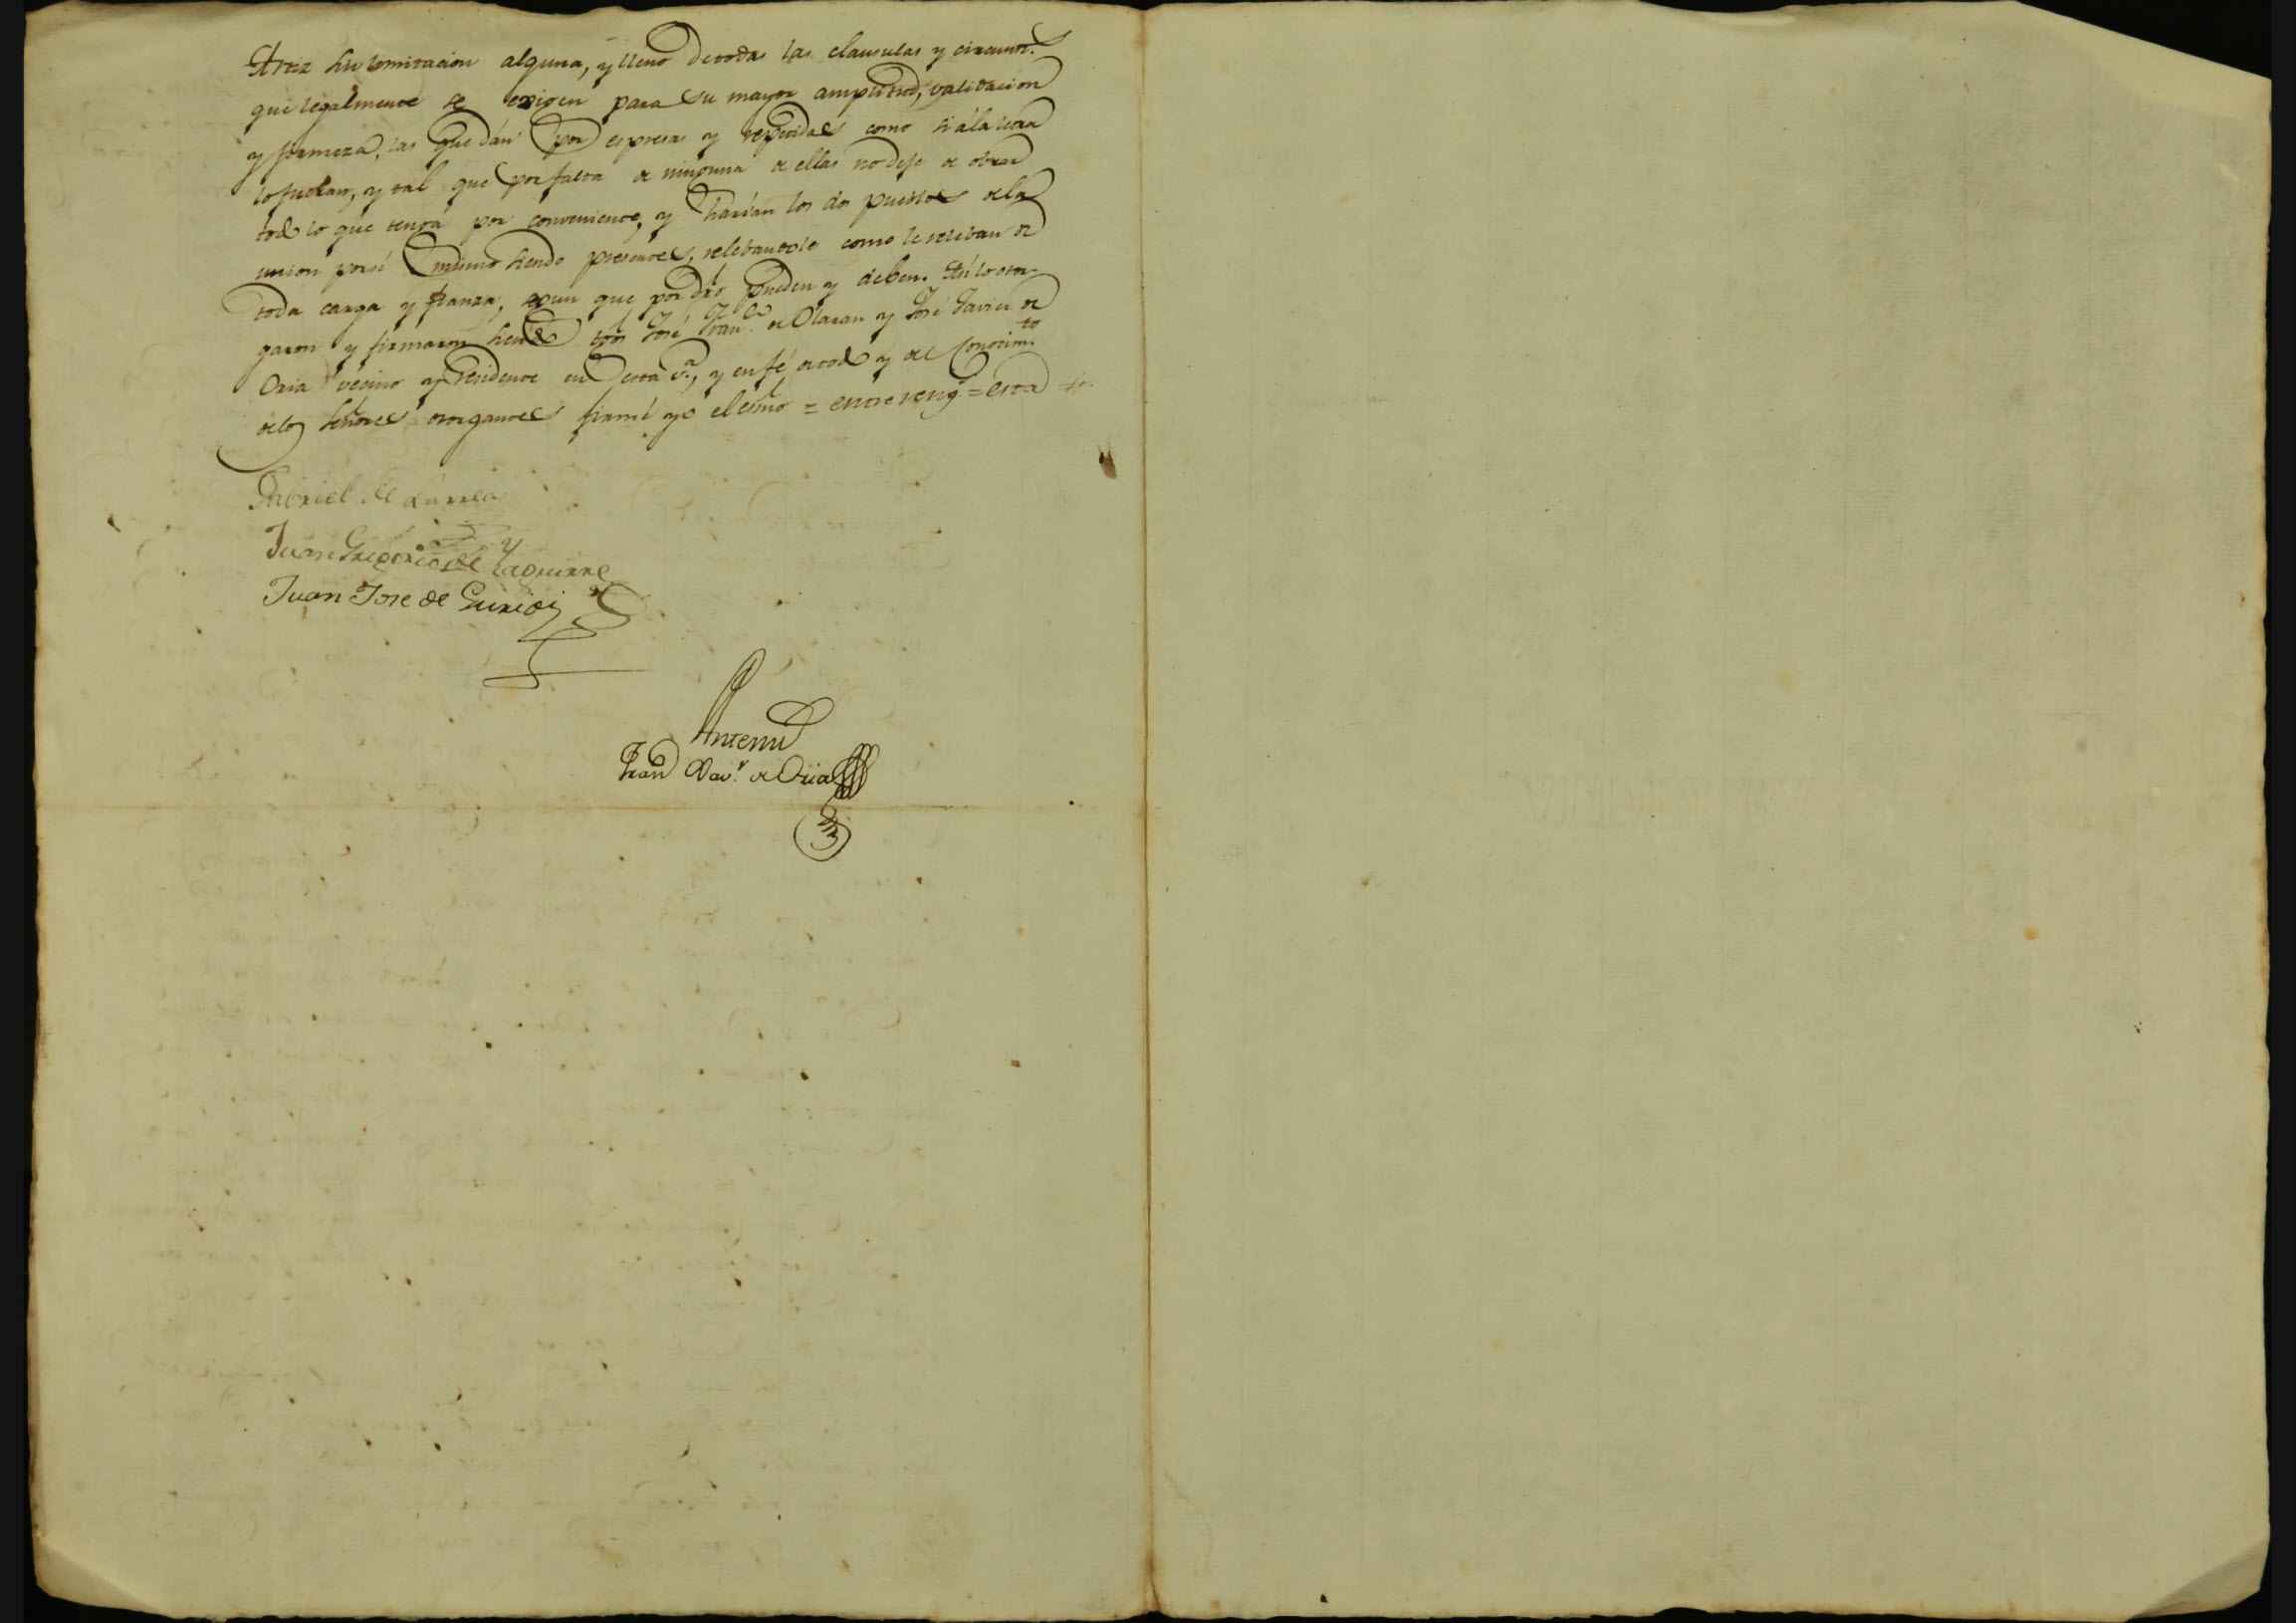 Artiz sin limitacion alguna, y lleno de todas las clausulas y circunst.s
que legalmente se exigen para su mayor amplitud, validacion
y firmeza, las que dán por espresas y repetidas como si á la letra
lo fueran, y tal que por falta de ninguna de ellas no deje de obrar
todo lo que tenga por conveniente, y harian los dos pueblos de la
union por sí mismo siendo presentes, relebandole como le releban de
toda carga y fianza, segun que por dro pueden y deben. Así lo otor-
garon y firmaron siendo tgos José Fran.co de Olaran y José Javier de
Oria vecino y residente en esta v.a, y en fé de todo y del conocim.to
de los señores otorgantes firmé yo el esno = entre reng.s = esta =
Gabriel de Larrea
Juan Gregorio de Yzaguirre
Juan Jose de Guridi
Antemi
Fran Xav.r de Oria